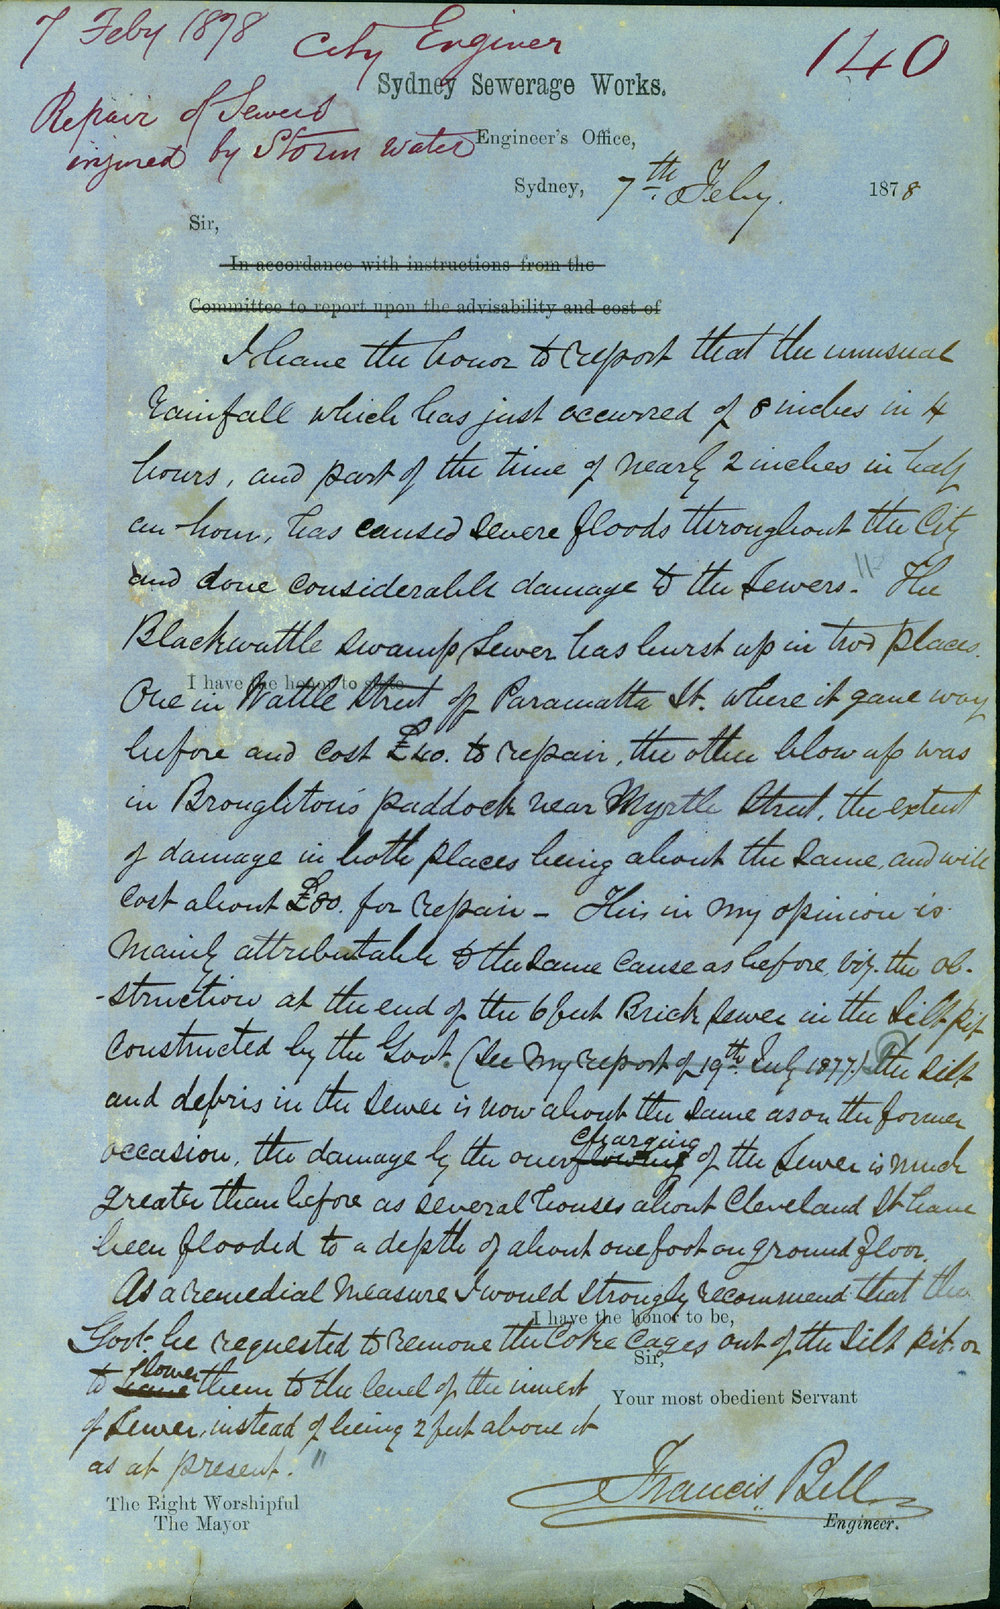 7 Feby 1878 City Enginer
140
Sydney Sewerage Works.
Repair of Sewers
injured by Storm Water
Engineer's Office,
Sydney, 7th Feby. 1878
Sir,
In accordance with instructions from the
Committee to report upon the advisability and cost of
I have the honor to report that the unusual
rainfall which has just occurred of 8 inches in 4
hours, and part of the time of nearly 2 inches in half
an hour, has caused severe floods throughout the City
and done considerable damage to the Sewers. " The
Blackwattle Swamp Sewer has burst up in two places.
I have the honor to state
One in Wattle Street off Paramatta St. where it gave way
before and cost £40. to repair, the other blow up was
in Broughton's paddock near Myrtle Street, the extent
of damage in both places being about the same, and will
cost about £80. for repair - This in my opinion is
mainly attributable to the same cause as before, viz. the ob-
-struction at the end of the 6 feet Brick Sewer in the Silt pit
constructed by the Govt. (See my report of 19th July 1877) the silt
and debris in the Sewer is now about the same as on the former
occasion, the damage by the overflowing charging of the Sewer is much
greater than before as several houses about Cleveland St have
been flooded to a depth of about one foot on ground floor.
As a remedial measure I would strongly recommend that the
I have the honor to be,
Govt. be requested to remove the Coke Cages out of the Silt pit or
Sir,
to have lower them to the level of the invert
Your most obedient Servant
of Sewer, instead of being 2 feet above it
as at present. "
Francis Bell
The Right Worshipful
The Mayor
Engineer.